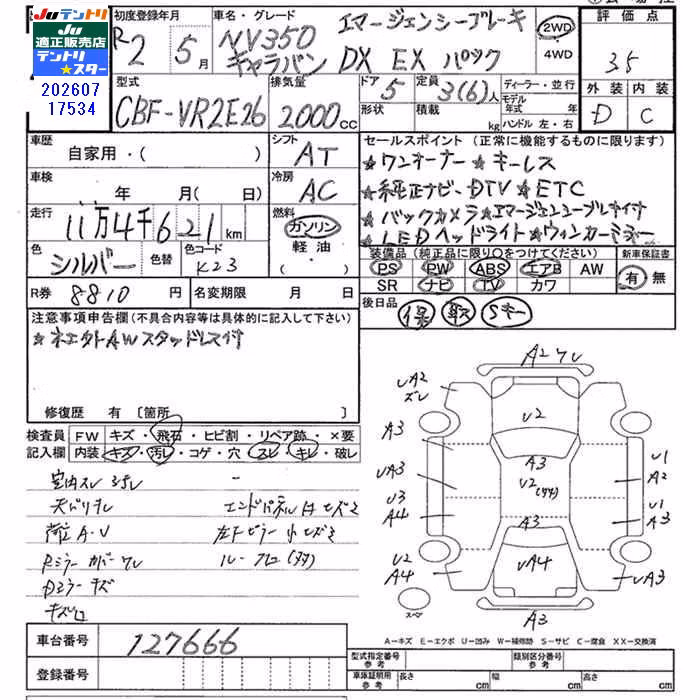 JUテントリ
JU
適正販売店
テントリ
★スター
202607
17534
初度登録年月
R2 5月
車名・グレード
NV350
キャラバン
エマージェンシーブレーキ
DX EX パック
2WD
4WD
評価点
3.5
外装 内装
D C
型式
CBF-VR2E26
排気量
2000cc
ドア
5
形状
定員
3(6)人
積載
kg
ディーラー・並行
モデル年式 年
ハンドル 左・右
車歴
自家用・( )
シフト
AT
車検
年 月( 日)
冷房
AC
走行
11万4千621km
燃料
ガソリン
軽油
色
シルバー
色替
色コード
K23
R券 8810円
名変期限 月 日
セールスポイント(正常に機能するものに限ります)
★ワンオーナー★キーレス
★純正ナビ-DTV★ETC
★バックカメラ★エマージェンシーブレーキ付
★LEDヘッドライト★ウィンカーミラー
装備品(純正品に限り○をつけてください)
新車保証書
PS PW ABS エアB AW
SR ナビ TV カワ
有 無
後日品
保 取 Sキー
注意事項申告欄(不具合内容等は具体的に記入して下さい)
修復歴 有〔箇所 〕
検査員
記入欄
FW キズ・飛石・ヒビ割・リペア跡・×要
内装 キズ・汚レ・コゲ・穴・スレ・キレ・破レ
荷室A・U
エンドパネル
Rミラーカバーワレ
キズ
A2 ワレ
UA2
ズレ
U2
A3
A3
UA3
U3
A4
U2
A3
U1
A2
U1
A3
U2
A4
UA4
UA3
A3
スペア
A-キズ E-エクボ U-凹み W-補修跡 S-サビ C-腐食 XX-交換済
車台番号
127666
登録番号
型式指定番号
参考
類別区分番号
参考
車庫証明用
参考
長さ cm
幅 cm
高さ cm